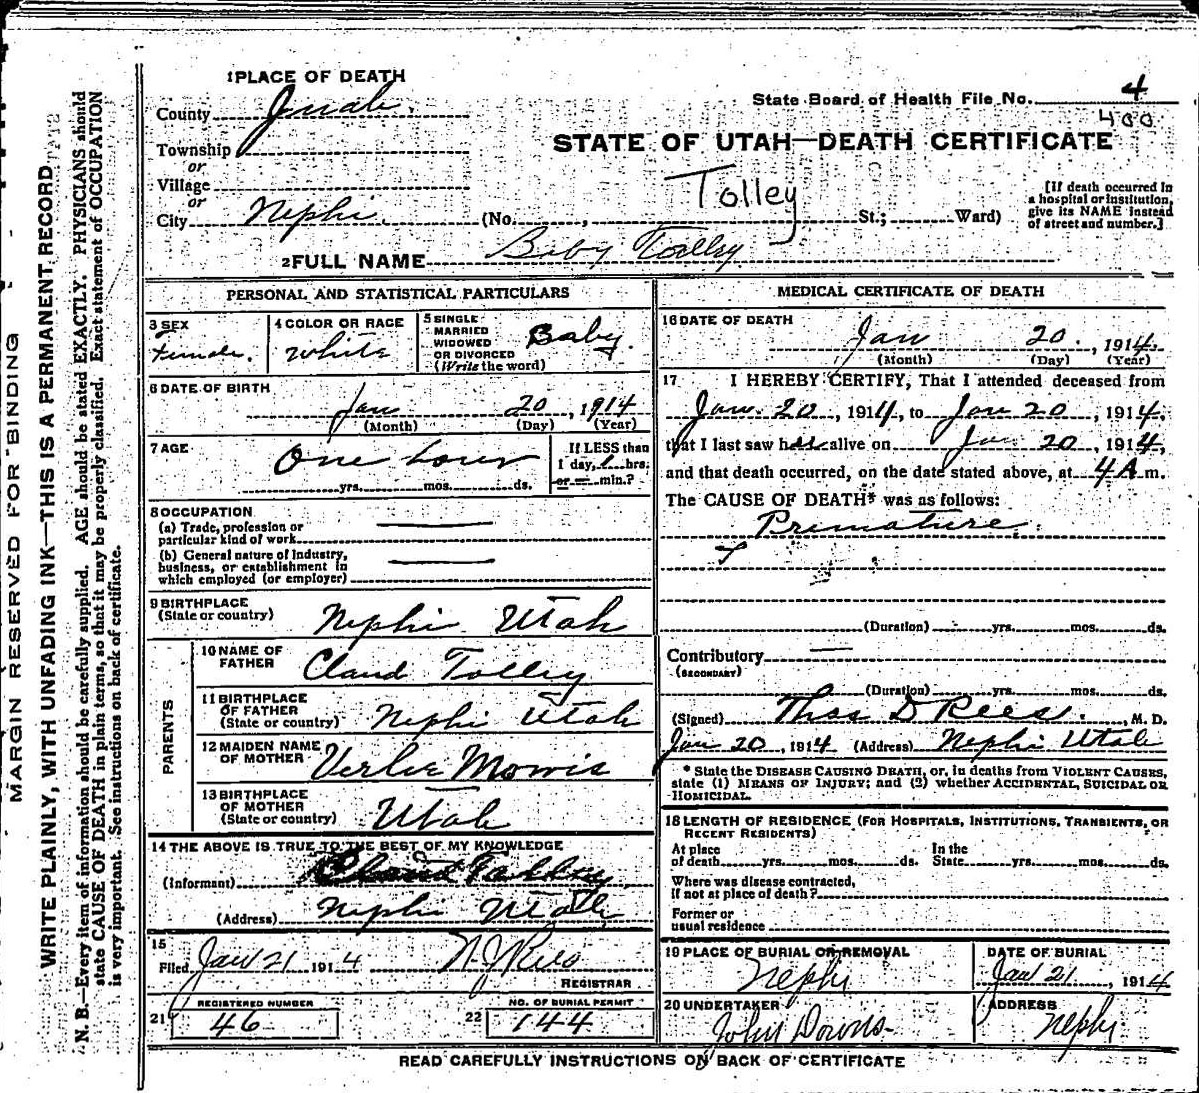 MARGIN RESERVED FOR BINDING
WRITE PLAINLY, WITH UNFADING INK—THIS IS A PERMANENT RECORD
N. B.—Every item of information should be carefully supplied. AGE should be stated EXACTLY. PHYSICIANS should
state CAUSE OF DEATH in plain terms, so that it may be properly classified. Exact statement of OCCUPATION
is very important. See instructions on back of certificate.
1 PLACE OF DEATH
County Juab.
Township
or
Village
or
City Nephi.
State Board of Health File No. 4
400
STATE OF UTAH—DEATH CERTIFICATE
Tolley
(No. , St.; Ward)
[If death occurred in
a hospital or institution,
give its NAME instead
of street and number.]
2 FULL NAME Baby Tolley
PERSONAL AND STATISTICAL PARTICULARS
3 SEX
Female.
4 COLOR OR RACE
White
5 SINGLE
MARRIED
WIDOWED
OR DIVORCED
(Write the word)
Baby.
6 DATE OF BIRTH
Jan 20, 1914
(Month) (Day) (Year)
7 AGE
One hour
yrs. mos. ds.
If LESS than
1 day, 1 hrs.
or min.?
8 OCCUPATION
(a) Trade, profession or
particular kind of work
(b) General nature of industry,
business, or establishment in
which employed (or employer)
9 BIRTHPLACE
(State or country)
Nephi Utah
PARENTS
10 NAME OF
FATHER
Claud Tolley
11 BIRTHPLACE
OF FATHER
(State or country)
Nephi Utah
12 MAIDEN NAME
OF MOTHER
Verlie Morris
13 BIRTHPLACE
OF MOTHER
(State or country)
Utah
14 THE ABOVE IS TRUE TO THE BEST OF MY KNOWLEDGE
(Informant) Claud Tolley
(Address) Nephi Utah
15
Filed Jan 21 1914 Rees
REGISTRAR
REGISTERED NUMBER
21 46
NO. OF BURIAL PERMIT
22 144
MEDICAL CERTIFICATE OF DEATH
16 DATE OF DEATH
Jan 20, 1914
(Month) (Day) (Year)
17 I HEREBY CERTIFY, That I attended deceased from
Jan. 20, 1914, to Jan 20, 1914,
that I last saw her alive on Jan 20, 1914,
and that death occurred, on the date stated above, at 4 A m.
The CAUSE OF DEATH* was as follows:
Premature.
(Duration) yrs. mos. ds.
Contributory
(SECONDARY)
(Duration) yrs. mos. ds.
(Signed) Thos D Rees., M. D.
Jan 20, 1914 (Address) Nephi Utah
* State the DISEASE CAUSING DEATH, or, in deaths from VIOLENT CAUSES,
state (1) MEANS OF INJURY; and (2) whether ACCIDENTAL, SUICIDAL OR
HOMICIDAL.
18 LENGTH OF RESIDENCE (FOR HOSPITALS, INSTITUTIONS, TRANSIENTS, OR
RECENT RESIDENTS)
At place
of death yrs. mos. ds.
In the
State yrs. mos. ds.
Where was disease contracted,
if not at place of death?
Former or
usual residence
19 PLACE OF BURIAL OR REMOVAL
Nephi
DATE OF BURIAL
Jan 21, 1914
20 UNDERTAKER
John Downs
ADDRESS
Nephi
READ CAREFULLY INSTRUCTIONS ON BACK OF CERTIFICATE